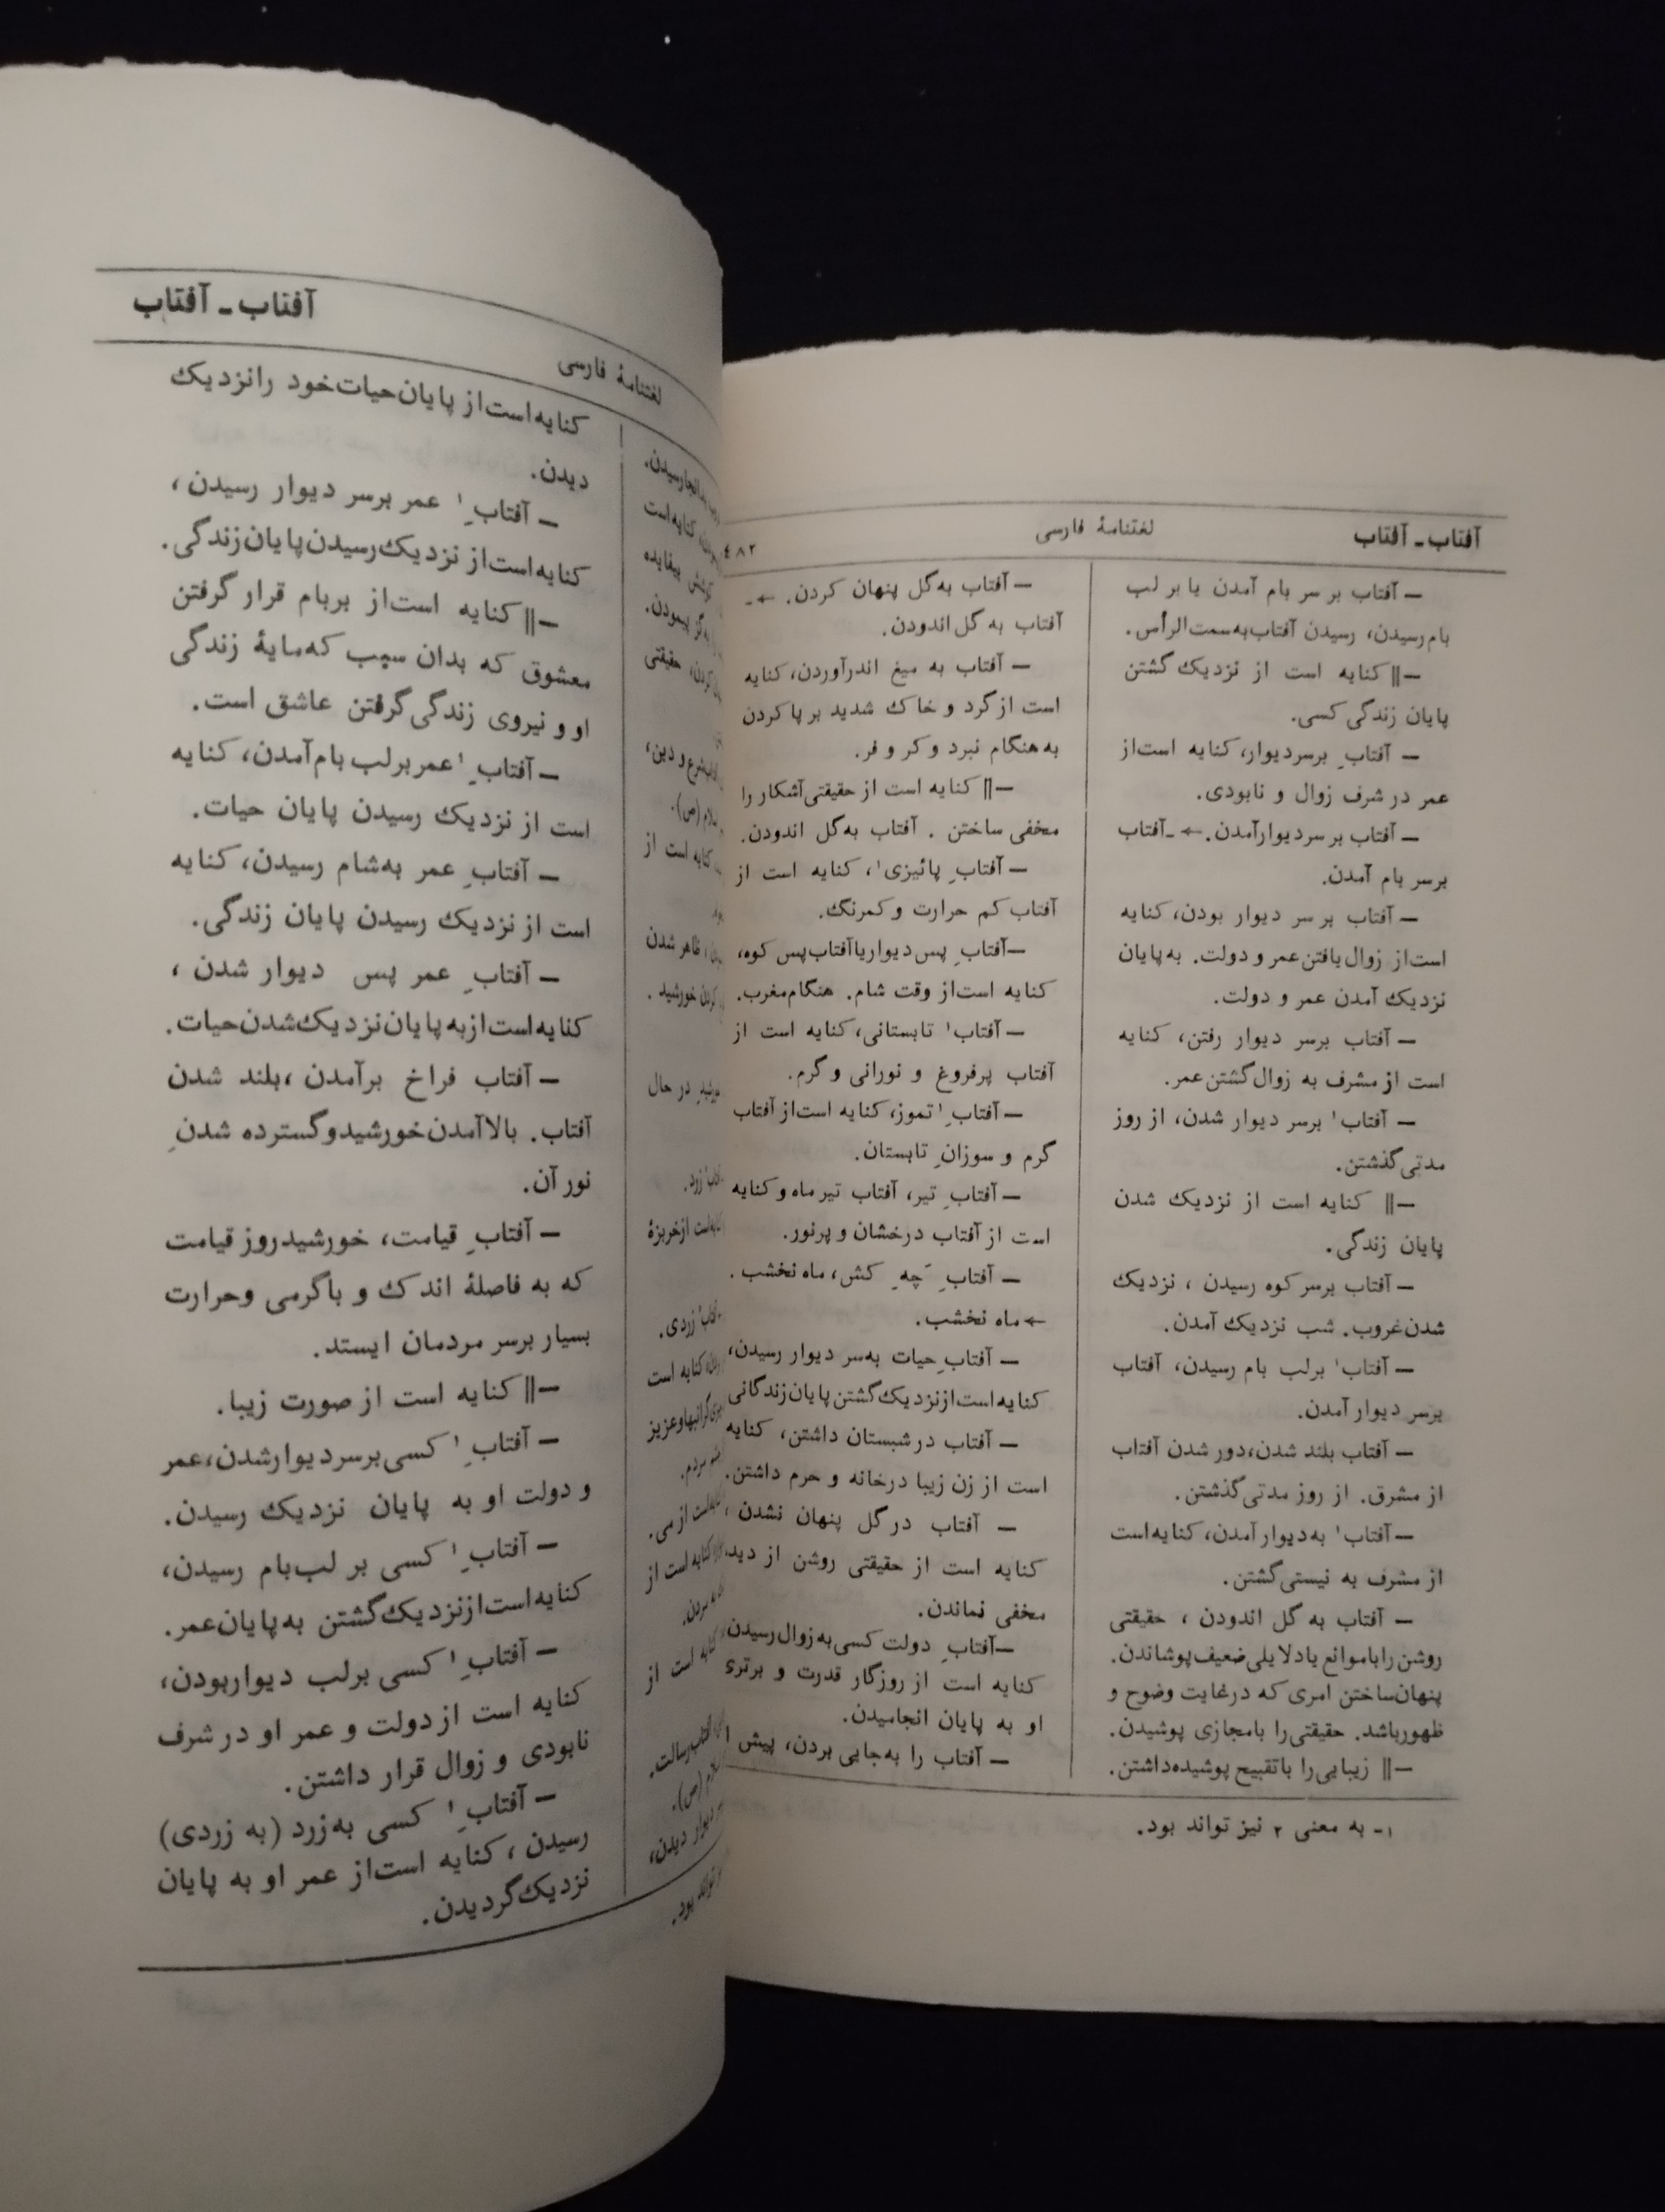 آفتاب ـ آفتاب
لغتنامهٔ فارسی
٤٨٢
ـ آفتاب بر سر بام آمدن یا بر لب
بام رسیدن، رسیدن آفتاب به سمت الرأس.
ـ || کنایه است از نزدیک گشتن
پایان زندگی کسی.
ـ آفتابِ برسر دیوار، کنایه است از
عمر در شرف زوال و نابودی.
ـ آفتاب بر سر دیوار آمدن. ← ـ آفتاب
برسر بام آمدن.
ـ آفتاب بر سر دیوار بودن، کنایه
است از زوال یافتن عمر و دولت. به پایان
نزدیک آمدن عمر و دولت.
ـ آفتاب برسر دیوار رفتن، کنایه
است از مشرف به زوال گشتن عمر.
ـ آفتاب۱ برسر دیوار شدن، از روز
مدتی گذشتن.
ـ || کنایه است از نزدیک شدن
پایان زندگی.
ـ آفتاب برسر کوه رسیدن ، نزدیک
شدن غروب. شب نزدیک آمدن.
ـ آفتاب۱ برلب بام رسیدن، آفتاب
برسر دیوار آمدن.
ـ آفتاب بلند شدن، دور شدن آفتاب
از مشرق. از روز مدتی گذشتن.
ـ آفتاب۱ به دیوار آمدن، کنایه است
از مشرف به نیستی گشتن.
ـ آفتاب به گل اندودن ، حقیقتی
روشن را با موانع یا دلایلی ضعیف پوشاندن.
پنهان ساختن امری که در غایت وضوح و
ظهور باشد. حقیقتی را با مجازی پوشیدن.
ـ || زیبایی را با تقبیح پوشیده داشتن.
ـ آفتاب به گل پنهان کردن. ← ـ
آفتاب به گل اندودن.
ـ آفتاب به میغ اندرآوردن، کنایه
است از گرد و خاک شدید بر پا کردن
به هنگام نبرد و کر و فر.
ـ || کنایه است از حقیقتی آشکار را
مخفی ساختن . آفتاب به گل اندودن.
ـ آفتابِ پائیزی۱، کنایه است از
آفتاب کم حرارت و کمرنگ.
ـ آفتابِ پس دیوار یا آفتاب پس کوه،
کنایه است از وقت شام. هنگام مغرب.
ـ آفتاب۱ تابستانی، کنایه است از
آفتاب پرفروغ و نورانی و گرم.
ـ آفتابِ۱ تموز، کنایه است از آفتاب
گرم و سوزانِ تابستان.
ـ آفتابِ تیر، آفتاب تیر ماه و کنایه
است از آفتاب درخشان و پرنور.
ـ آفتابِ چَهِ کش، ماه نخشب .
← ماه نخشب.
ـ آفتابِ حیات به سر دیوار رسیدن،
کنایه است از نزدیک گشتن پایان زندگانی
ـ آفتاب در شبستان داشتن، کنایه
است از زن زیبا درخانه و حرم داشتن.
ـ آفتاب در گل پنهان نشدن ،
کنایه است از حقیقتی روشن از دید
مخفی نماندن.
ـ آفتابِ دولت کسی به زوال رسیدن
کنایه است از روزگار قدرت و برتری
او به پایان انجامیدن.
ـ آفتاب را به جایی بردن، پیش
۱ـ به معنی ۲ نیز تواند بود.
آفتاب ـ آفتاب
لغتنامهٔ فارسی
کنایه است
بیفایده
پیمودن.
حقیقتی
شرع و دین،
(ص).
کنایه است از
ظاهر شدن
کردن خورشید .
در حال
زرد.
است از خربزهٔ
زردی.
کنایه است
گرانبها و عزیز
مردم.
است از می.
کنایه است از
است از
آفتاب رسالت.
(ص).
دیوار دیدن،
تواند بود.
کنایه است از پایان حیات خود را نزدیک
دیدن.
ـ آفتابِ۱ عمر برسر دیوار رسیدن ،
کنایه است از نزدیک رسیدن پایان زندگی.
ـ || کنایه است از بربام قرار گرفتن
معشوق که بدان سبب که مایهٔ زندگی
او و نیروی زندگی گرفتن عاشق است.
ـ آفتابِ۱ عمر برلب بام آمدن، کنایه
است از نزدیک رسیدن پایان حیات.
ـ آفتابِ عمر به شام رسیدن، کنایه
است از نزدیک رسیدن پایان زندگی.
ـ آفتابِ عمر پس دیوار شدن ،
کنایه است از به پایان نزدیک شدن حیات.
ـ آفتاب فراخ برآمدن ، بلند شدن
آفتاب. بالا آمدن خورشید و گسترده شدنِ
نور آن.
ـ آفتابِ قیامت، خورشید روز قیامت
که به فاصلهٔ اندک و باگرمی وحرارت
بسیار برسر مردمان ایستد.
ـ || کنایه است از صورت زیبا.
ـ آفتابِ۱ کسی برسر دیوار شدن، عمر
و دولت او به پایان نزدیک رسیدن.
ـ آفتابِ۱ کسی بر لب بام رسیدن،
کنایه است از نزدیک گشتن به پایان عمر.
ـ آفتابِ۱ کسی برلب دیوار بودن،
کنایه است از دولت و عمر او در شرف
نابودی و زوال قرار داشتن.
ـ آفتابِ۱ کسی به زرد (به زردی)
رسیدن ، کنایه است از عمر او به پایان
نزدیک گردیدن.